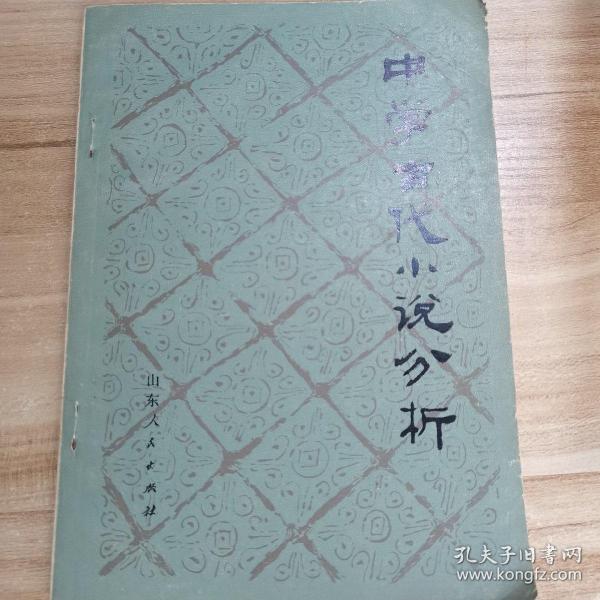 中学古代小说分析
山东人民出版社
孔夫子旧书网
www.kongfz.com